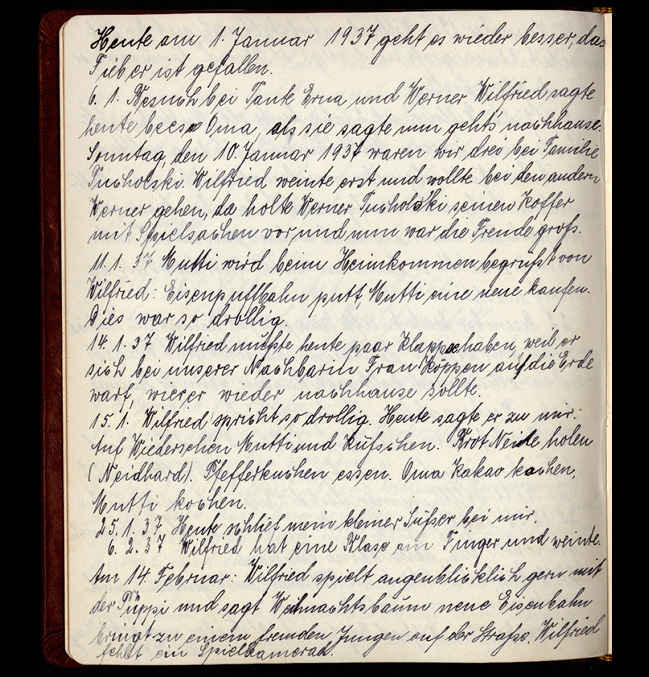 Heute am 1. Januar 1937 geht es wieder besser, das
Fieber ist gefallen.
6. 1. Besuch bei Tante Erna und Werner Wilfried sagte
heute Oma, als sie sagte nun geht's nachhause.
Sonntag, den 10. Januar 1937 waren wir drei bei Familie
Tucholski. Wilfried weinte erst und wollte bei den andern
Werner gehen, da holte Werner Tucholski seinen Koffer
mit Spielsachen vor, und nun war die Freude groß.
11. 1. 37 Mutti wird beim Heimkommen begrüßt von
Wilfried: Eisenpuffbahn putt Mutti eine neue kaufen.
Dies war so drollig.
14. 1. 37 Wilfried mußte heute paar Klappse haben, weil er
sich bei unserer Nachbarin Frau Köppen auf die Erde
warf, wie er wieder nachhause sollte.
15. 1. Wilfried spricht so drollig. Heute sagte er zu mir:
Auf Wiedersehen Mutti und Küßchen. Brot Neide holen
(Neidhard). Pfefferkuchen essen. Oma Kakao kochen,
Mutti kochen.
25. 1. 37 Heute schlief mein kleiner Süßer bei mir.
6. 2. 37 Wilfried hat eine Blase am Finger und weinte.
Am 14. Februar: Wilfried spielt augenblicklich gern mit
der Püppi und sagt Weihnachtsbaum neue Eisenbahn
bringt zu einem fremden Jungen auf der Straße. Wilfried
fehlt ein Spielkamerad.